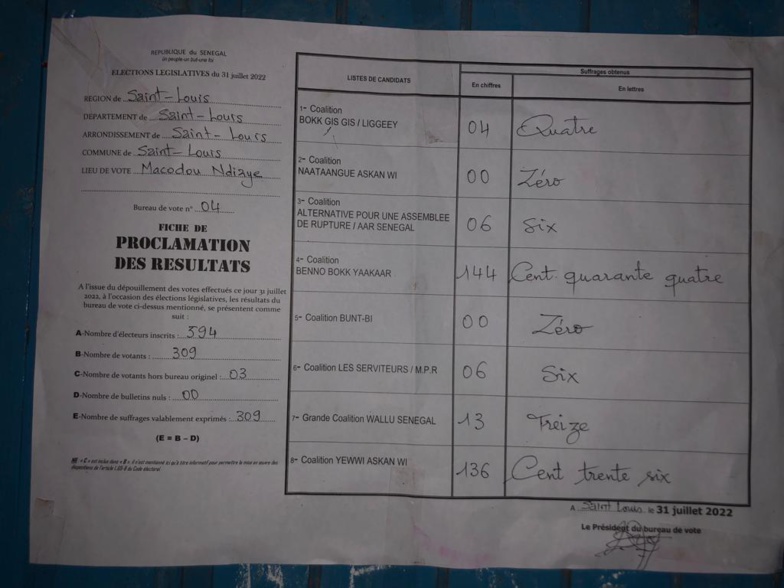 REPUBLIQUE du SENEGAL
Un peuple-un but-une foi
ELECTIONS LEGISLATIVES du 31 juillet 2022
REGION de Saint-Louis
DEPARTEMENT de Saint-Louis
ARRONDISSEMENT de Saint-Louis
COMMUNE de Saint-Louis
LIEU DE VOTE Macodou Ndiaye
Bureau de vote n° 04
FICHE DE
PROCLAMATION
DES RESULTATS
A l'issue du dépouillement des votes effectués ce jour 31 juillet
2022, à l'occasion des élections législatives, les résultats du
bureau de vote ci-dessus mentionné, se présentent comme
suit :
A-Nombre d'électeurs inscrits : 594
B-Nombre de votants : 309
C-Nombre de votants hors bureau originel : 03
D-Nombre de bulletins nuls : 00
E-Nombre de suffrages valablement exprimés : 309
(E = B – D)
LISTES DE CANDIDATS
Suffrages obtenus
En chiffres
En lettres
1- Coalition
BOKK GIS GIS / LIGGEEY
04 Quatre
2- Coalition
NAATAANGUE ASKAN WI
00 Zéro
3- Coalition
ALTERNATIVE POUR UNE ASSEMBLEE
DE RUPTURE / AAR SENEGAL
06 Six
4- Coalition
BENNO BOKK YAAKAAR
144 Cent quarante quatre
5- Coalition BUNT-BI
00 Zéro
6- Coalition LES SERVITEURS / M.P.R
06 Six
7- Grande Coalition WALLU SENEGAL
13 Treize
8- Coalition YEWWI ASKAN WI
136 Cent trente six
A Saint Louis le 31 juillet 2022
Le Président du bureau de vote